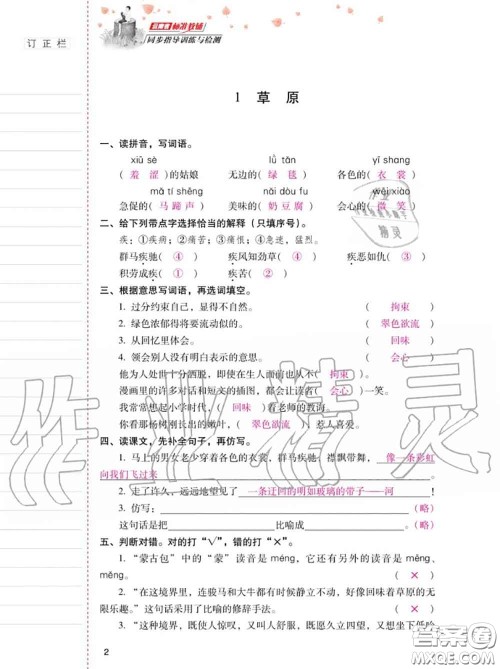 云南省标准教辅
同步指导训练与检测
订正栏
1 草 原
一、读拼音，写词语。
xiū sè lǜ tǎn yī shang
（ 羞 涩 ）的姑娘 无边的（ 绿 毯 ） 各色的（ 衣 裳 ）
mǎ tí shēng nǎi dòu fu wēi xiào
急促的（ 马 蹄 声 ） 美味的（ 奶 豆 腐 ） 会心的（ 微 笑 ）
二、给下列带点字选择恰当的解释（只填序号）。
疾：①疾病；②痛苦；③痛恨；④急速，猛烈。
群马疾驰（ ④ ） 疾风知劲草（ ④ ） 疾恶如仇（ ③ ）
积劳成疾（ ① ） 疾苦（ ② ）
三、根据意思写词语，再选词填空。
1. 过分约束自己，显得不自然。 （ 拘束 ）
2. 绿色浓郁得将要流动似的。 （ 翠色欲流 ）
3. 从回忆里体会。 （ 回味 ）
4. 领会别人没有明白表示的意思。 （ 会心 ）
他为人处世十分洒脱，即使在生人面前也从不（ 拘束 ）。
漫画里的许多对话和短文的插图，都让人会忍不住（ 会心 ）一笑。
我常常想起小学时代，（ 回味 ）着老师的教诲。
你看那杨树刚长出的嫩叶，（ 翠色欲流 ），惹人喜爱。
四、读课文，先补全句子，再仿写。
1. 马上的男女老少穿着各色的衣裳，群马疾驰，襟飘带舞，像一条彩虹
向我们飞过来
2. 走了许久，远远地望见了 一条迂回的明如玻璃的带子——河
3. 仿写：。（略）
这句话是把比喻成。（略）
五、判断对错。对的打“√”，错的打“×”。
1. “蒙古包”中的“蒙”读音是méng，它还有另外的读音是mēng、
měng。 （ × ）
2. “在这境界里，连骏马和大牛都有时候静立不动，好像回味着草原的无
限乐趣。”这句话采用了比喻的修辞手法。 （ × ）
3. “这种境界，既使人惊叹，又叫人舒服，既愿久立四望，又想坐下低吟
2
作业精灵
答案圈
MXQE.COM